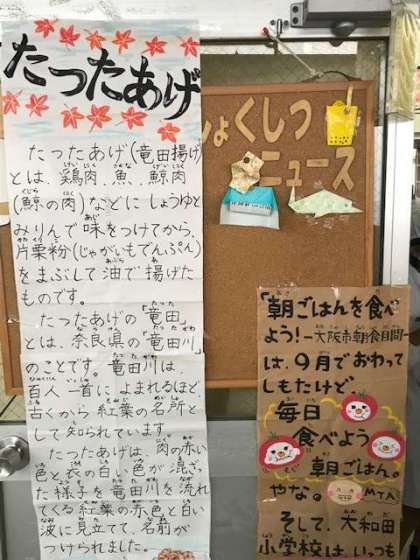 たったあげ
たったあげ(竜田揚げ)
とは、鶏肉、魚、鯨肉
(鯨の肉)などにしょうゆと
みりんで味をつけてから、
片栗粉(じゃがいもでんぷん)
をまぶして油で揚げた
ものです。
たったあげの「竜田」
とは、奈良県の「竜田川」
のことです。竜田川は、
百人一首に、よまれるほど
古くから紅葉の名所と
して知られています。
たったあげは、肉の赤い
色と衣の白い色が混ざっ
た様子を竜田川を流れ
てくる紅葉の赤色と白い
波に見立てて、名前が
つけられました。
ょくしつ
ニュース
「朝ごはんを食べ
よう!-大阪市朝食月間-
は、9月でおわって
しもたけど、
毎日
食べよう
朝ごはん。
やな。
MTA
そして、大和田
小学校は、いつも